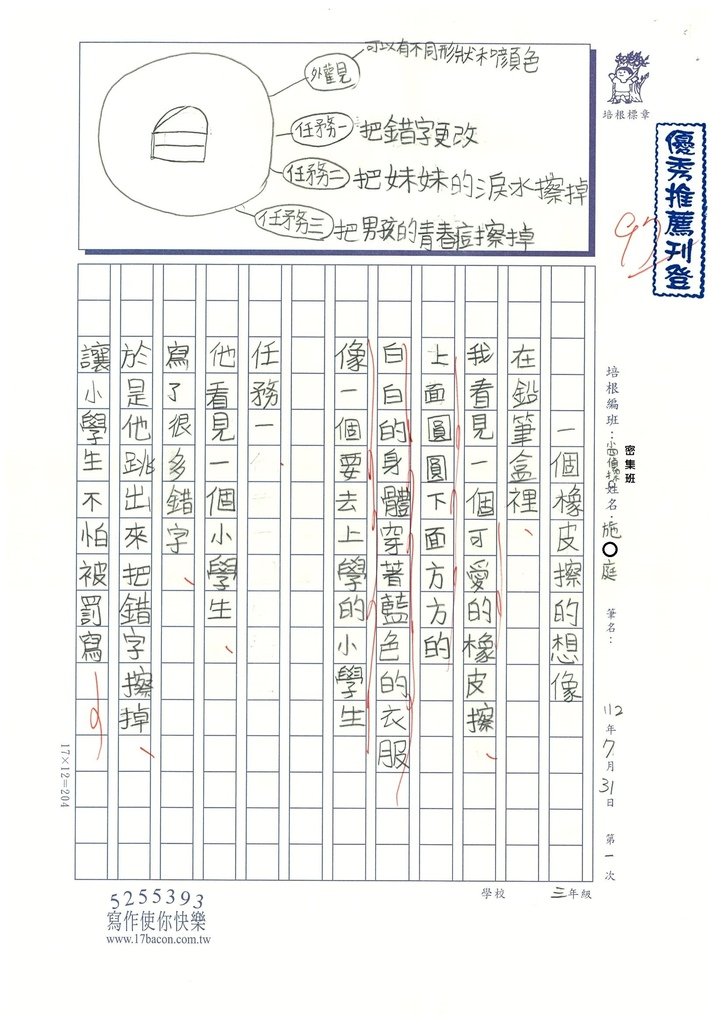 外觀見
可以有不同形狀和顏色
任務一
把錯字更改
任務二
把妹妹的淚水擦掉
任務三
把男孩的青春痘擦掉
培根標章
優秀推薦刊登
97
密集班
培根編班：
姓名：施〇庭
筆名：
112年7月31日
第一次
一個橡皮擦的想像
在鉛筆盒裡、
我看見一個可愛的橡皮擦、
上面圓圓下面方方的
白白的身體穿著藍色的衣服
像一個要去上學的小學生
任務一
他看見一個小學生、
寫了很多錯字、
於是他跳出來把錯字擦掉、
讓小學生不怕被罰寫
17×12=204
學校
三年級
5255393
寫作使你快樂
www.17bacon.com.tw